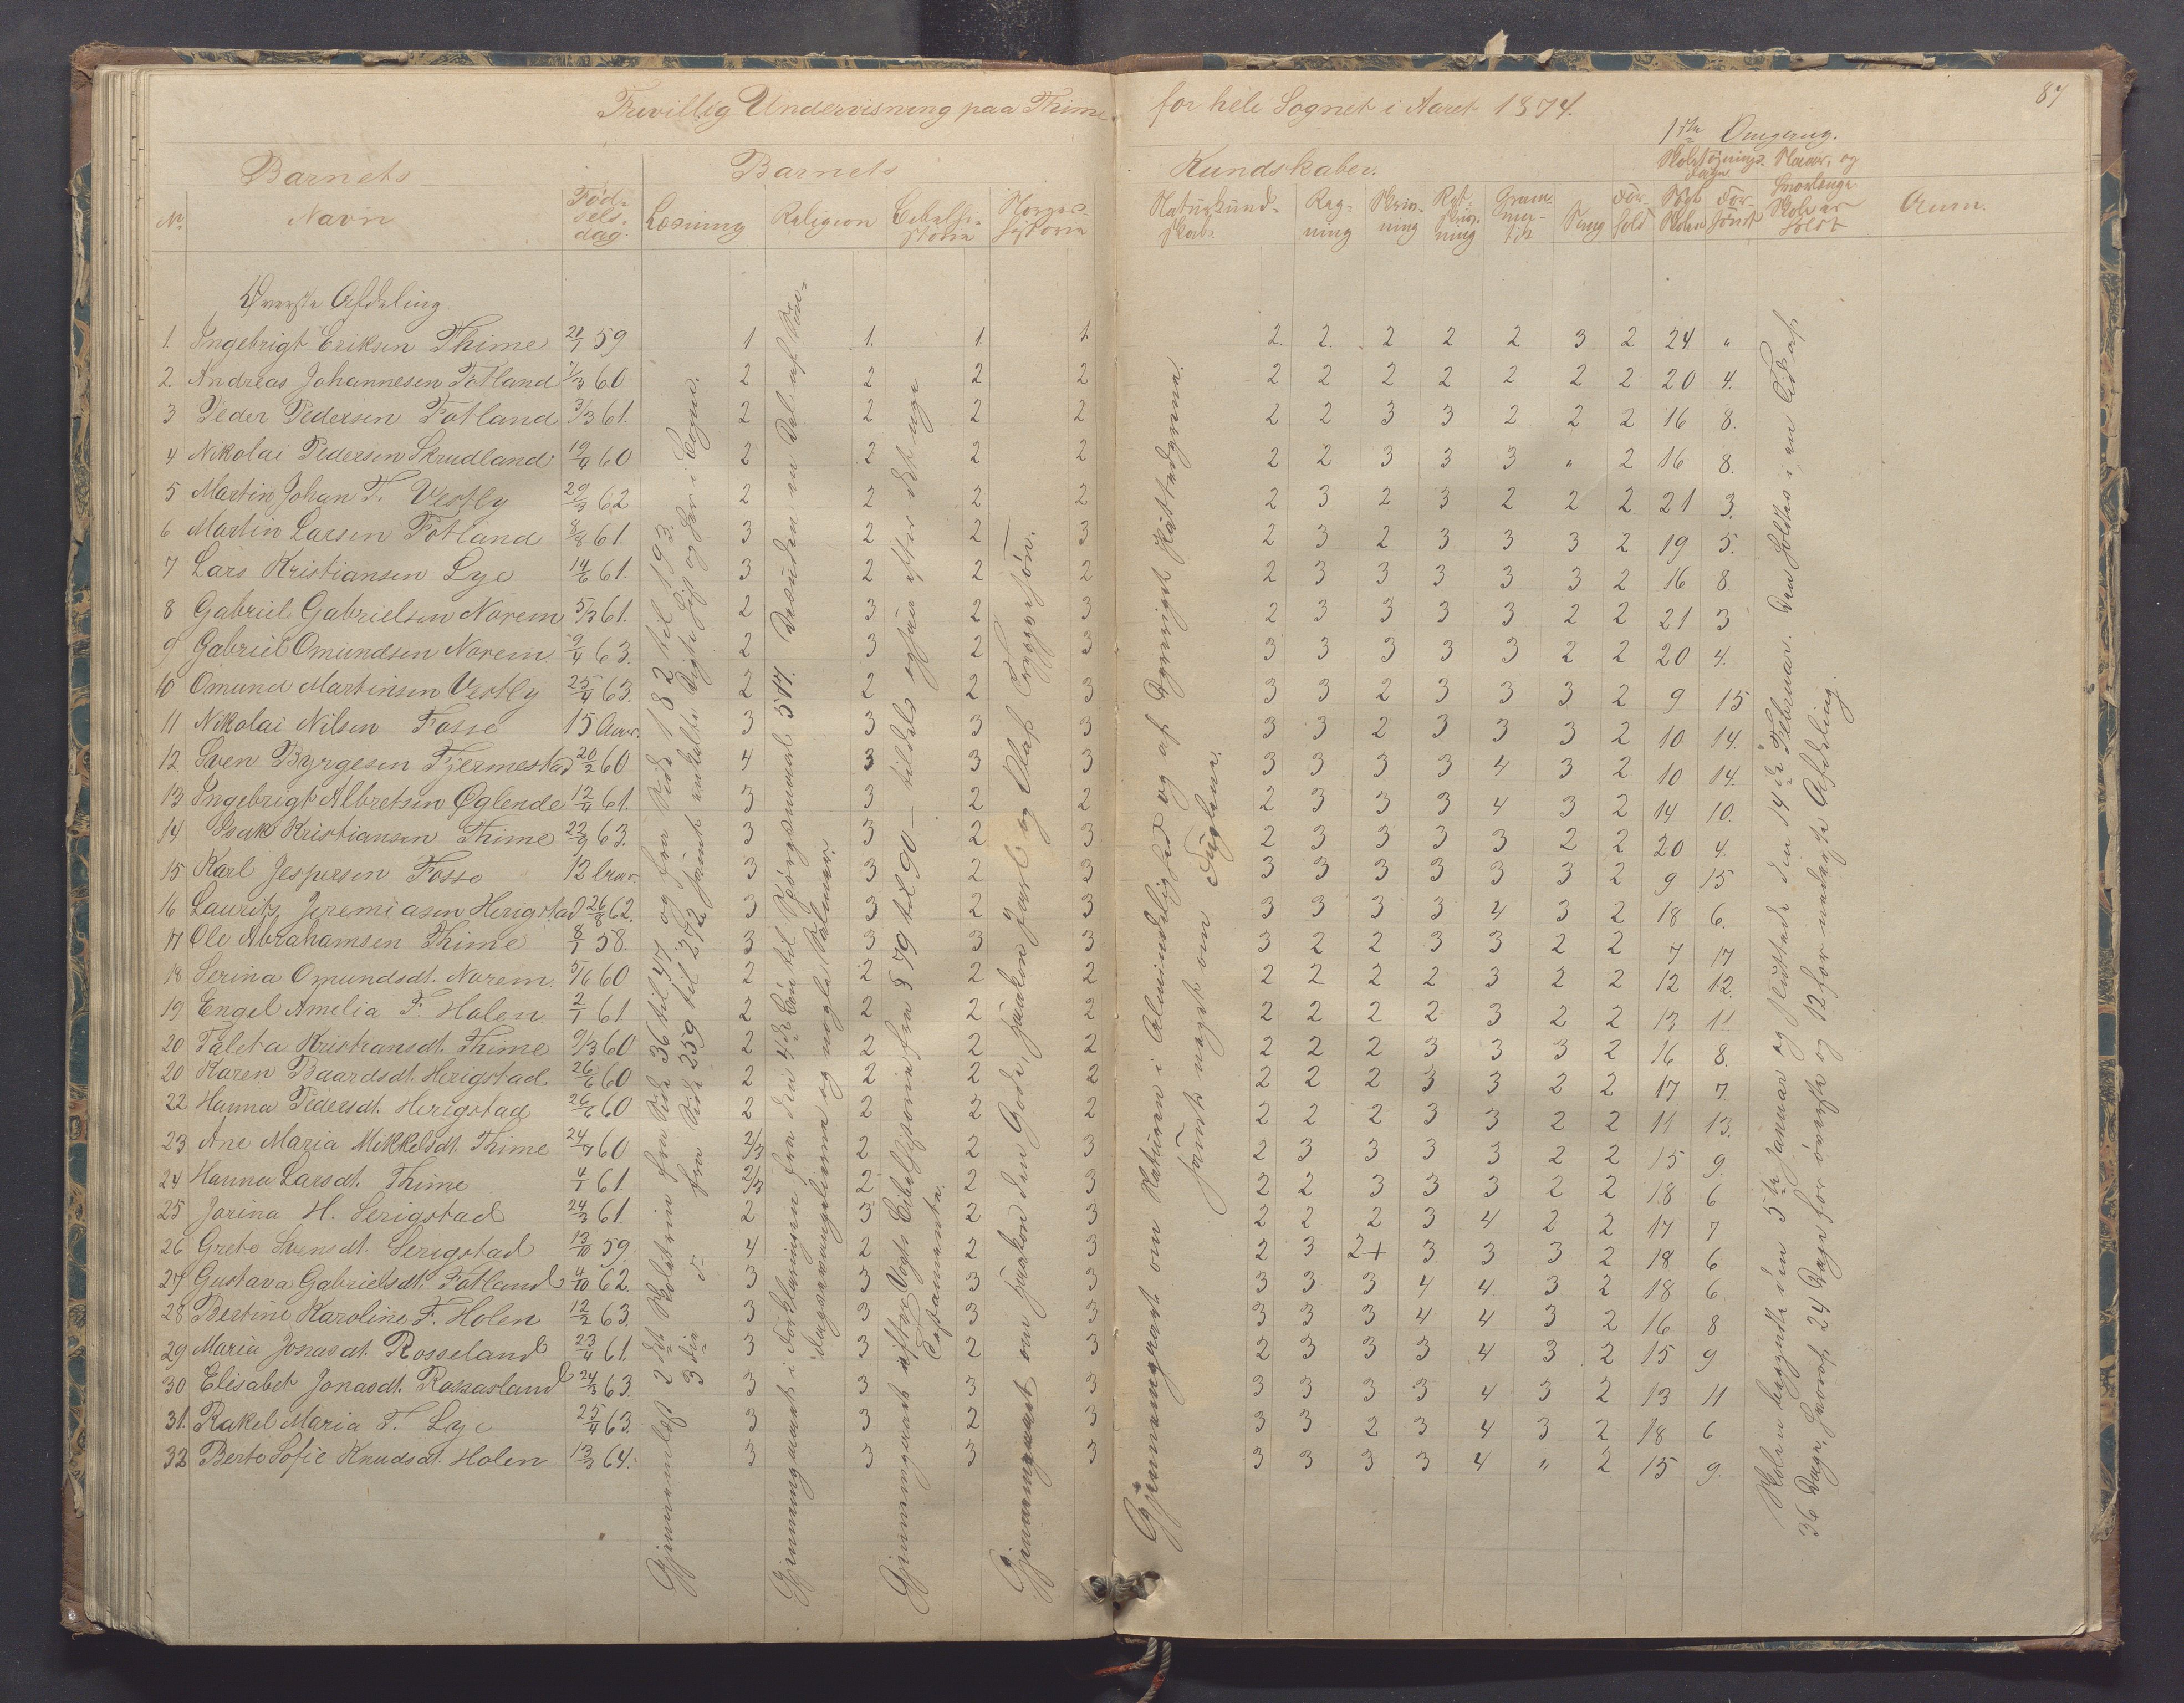 Frivillig Undervisning paa Thime for hele Sognet i Aaret 1874.
87
1ste Omgang.
Barnets
Barnets Kundskaber.
No Navn Fødselsdag. Læsning Religion Bibelhistorie Norgeshistorie Naturkundskab. Regning Skrivning Retskrivning Grammatik Sang Forhold Søgt Skolen Forsømt Naar, og hvorlænge Skole er holdt Anm.
Øverste Afdeling.
1. Ingebrigt Eriksen Thime 21/1 59 1 1. 1. 1 2. 2. 2 2 2 3 2 24 "
2. Andreas Johannesen Fotland 1/3 60 2 2 2 2 2 2 2 2 2 2 2 20 4.
3 Peder Pedersen Fotland 3/3 61. 2 2 2 2 2 2 3 3 2 2 2 16 8.
4 Nikolai Pedersen Skrudland 19/4 60 2 2 2 2 2 2 3 3 3 " 2 16 8.
5 Martin Johan T. Vestly 29/3 62 2 2 2 2 2 3 2 3 2 2 2 21 3.
6 Martin Larsen Fotland 8/8 61. 3 2 2 3 2 3 2 3 3 3 2 19 5.
7 Lars Kristiansen Lye 14/6 61. 3 2 2 2 2 3 3 3 3 3 2 16 8
8 Gabriel Gabrielsen Norem 5/3 61. 2 3 2 3 2 3 3 3 3 2 2 21 3
9 Gabriel Omundsen Norem. 9/4 63. 2 3 2 3 3 3 3 3 3 2 2 20 4.
10 Omund Martinsen Vestly 25/4 63. 2 2 2 3 3 3 2 3 3 3 2 9 15
11 Nikolai Nilsen Fosse 15 Aar. 3 3 3 3 3 3 2 3 3 3 2 10 14.
12. Sven Byrgesen Fjermestad 20/2 60 4 3 3 3 3 3 3 3 4 3 2 10 14.
13 Ingebrigt Albretsen Øglende 12/4 61. 3 3 2 2 2 3 3 3 4 3 2 14 10.
14 Isak Kristiansen Thime 22/9 63. 3 3 2 3 2 3 3 3 3 2 2 20 4.
15 Karl Jespersen Fosse 12 Aar. 3 3 2 3 3 3 3 3 3 3 2 9 15
16 Lauritz Jeremiasen Herigstad 26/8 62. 3 3 2 3 3 3 3 3 4 3 2 18 6.
17 Ole Abrahamsen Thime 8/1 58. 3 3 3 3 3 2 2 3 3 2 2 7 17
18 Serina Omundsdt. Norem. 5/6 60 2 2 2 2 2 2 2 2 3 2 2 12 12.
19 Engel Amelia F. Holen 2/1 61 2 2 2 2 2 2 2 2 3 2 2 13 11
20 Taleta Kristiansdt. Thime 9/3 60 2 2 2 2 2 2 2 3 3 3 2 16 8.
20 Karen Baardsdt. Herigstad 26/6 60 2 2 2 2 2 2 2 3 3 2 2 17 7
22 Hanna Pedersdt. Herigstad 26/6 60 2 2 2 2 2 2 2 3 3 2 2 11 13.
23 Ane Maria Mikkelsdt. Thime 24/7 60 2/3 2 2 3 2 3 3 3 3 2 2 15 9.
24 Hanna Larsdt. Thime 4/1 61. 2/3 2 2 3 2 2 3 3 3 2 2 18 6
25 Jorina H. Serigstad 24/3 61. 2 3 2 3 2 2 2 3 4 2 2 17 7
26 Grete Svensdt. Serigstad 13/10 59. 4 2 2 3 2 3 2+ 3 3 3 2 18 6
27 Gustava Gabrielsdt. Fotland 4/10 62. 3 3 3 3 3 3 3 4 4 3 2 18 6.
28 Bertine Karoline F. Holen 12/2 63. 3 3 3 3 3 3 3 4 4 3 2 16 8
29 Maria Jonasdt. Rosseland 23/4 61. 3 3 2 3 2 3 3 3 4 3 2 15 9
30 Elisabet Jonasdt. Rossasland 24/3 63. 3 3 3 3 3 3 3 3 4 3 2 13 11
31. Rakel Maria T. Lye 25/4 63. 3 3 2 3 3 3 2 3 4 3 2 18 6
32 Berte Sofie Knudsdt. Holen 13/3 64. 3 3 3 3 3 3 3 3 4 " 2 15 9.
Gjennemløst 2det Skoletrin fra Side 36 til 47 og fra Side 182 til 193.
3die d– fra Side 259 til 272 samt enkelte Digte hist og her i Bogen.
Gjennemgaaet i Forklaringen fra den 4de Bøn til Spørgsmaal 517. Desuden en Del af Søndagsevangelierne og nogle Salmer.
Gjennemgaaet efter Vogts Bibelhistorie fra § 79 til 90 — tildels ogsaa efter det nye Testamente.
Gjennemgaaet om Haakon den Gode, Haakon Jarl og Olaf Trygvesøn.
Gjennemgaaet om Naturen i Almindelighed og af Dyreriget Pattedyrene samt noget om Fuglene.
Skolen begyndte den 5te Januar og sluttede den 14de Februar. Den holdtes i en Tid af 36 Dage, hvoraf 24 Dage for øverste og 12 for nederste Afdeling.